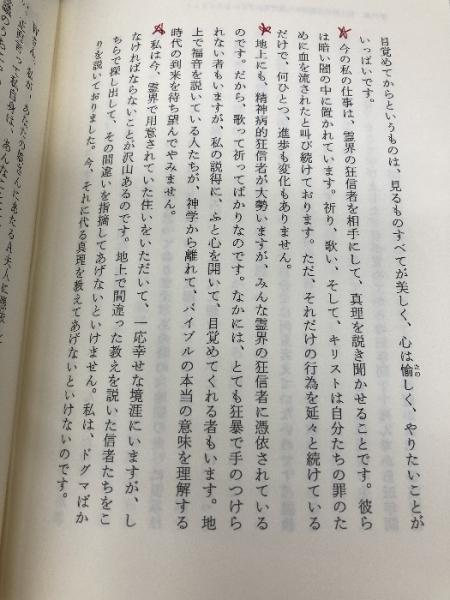 目覚めてからというものは、見るものすべてが美しく、心は愉しく、やりたいことが
たの
いっぱいです。
今の私の仕事は、霊界の狂信者を相手にして、真理を説き聞かせることです。彼ら
は暗い闇の中に置かれています。祈り、歌い、そして、キリストは自分たちの罪のた
めに血を流されたと叫び続けております。ただ、それだけの行為を延々と続けている
だけで、何ひとつ、進歩も変化もありません。
地上にも、精神病的狂信者が大勢いますが、みんな霊界の狂信者に憑依されている
のです。だから、歌って祈ってばかりなのです。なかには、とても狂暴で手のつけら
れない者もいますが、私の説得に、ふと心を開いて、目覚めてくれる者もいます。地
上で福音を説いている人たちが、神学から離れて、バイブルの本当の意味を理解する
時代の到来を待ち望んでやみません。
私は今、霊界で用意されていた住いをいただいて、一応幸せな境涯にいますが、し
なければならないことが沢山あるのです。地上で間違った教えを説いた信者たちをこ
ちらで探し出して、その間違いを指摘してあげないといけません。私は、ドグマばか
りを説いておりました。今、それに代る真理を教えてあげないといけないのです。
私が、あなたの奥さんにあたるA夫人に
私自身は、あんな